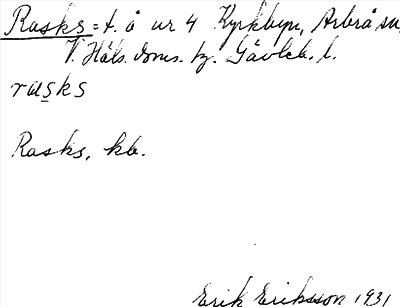 Rasks = t. å ur 4 Kyrkbyn, Arbrå sn,
V. Häls. doms. hg. Gävleb. l.
rasks
Rasks, kb.
Erik Eriksson 1931